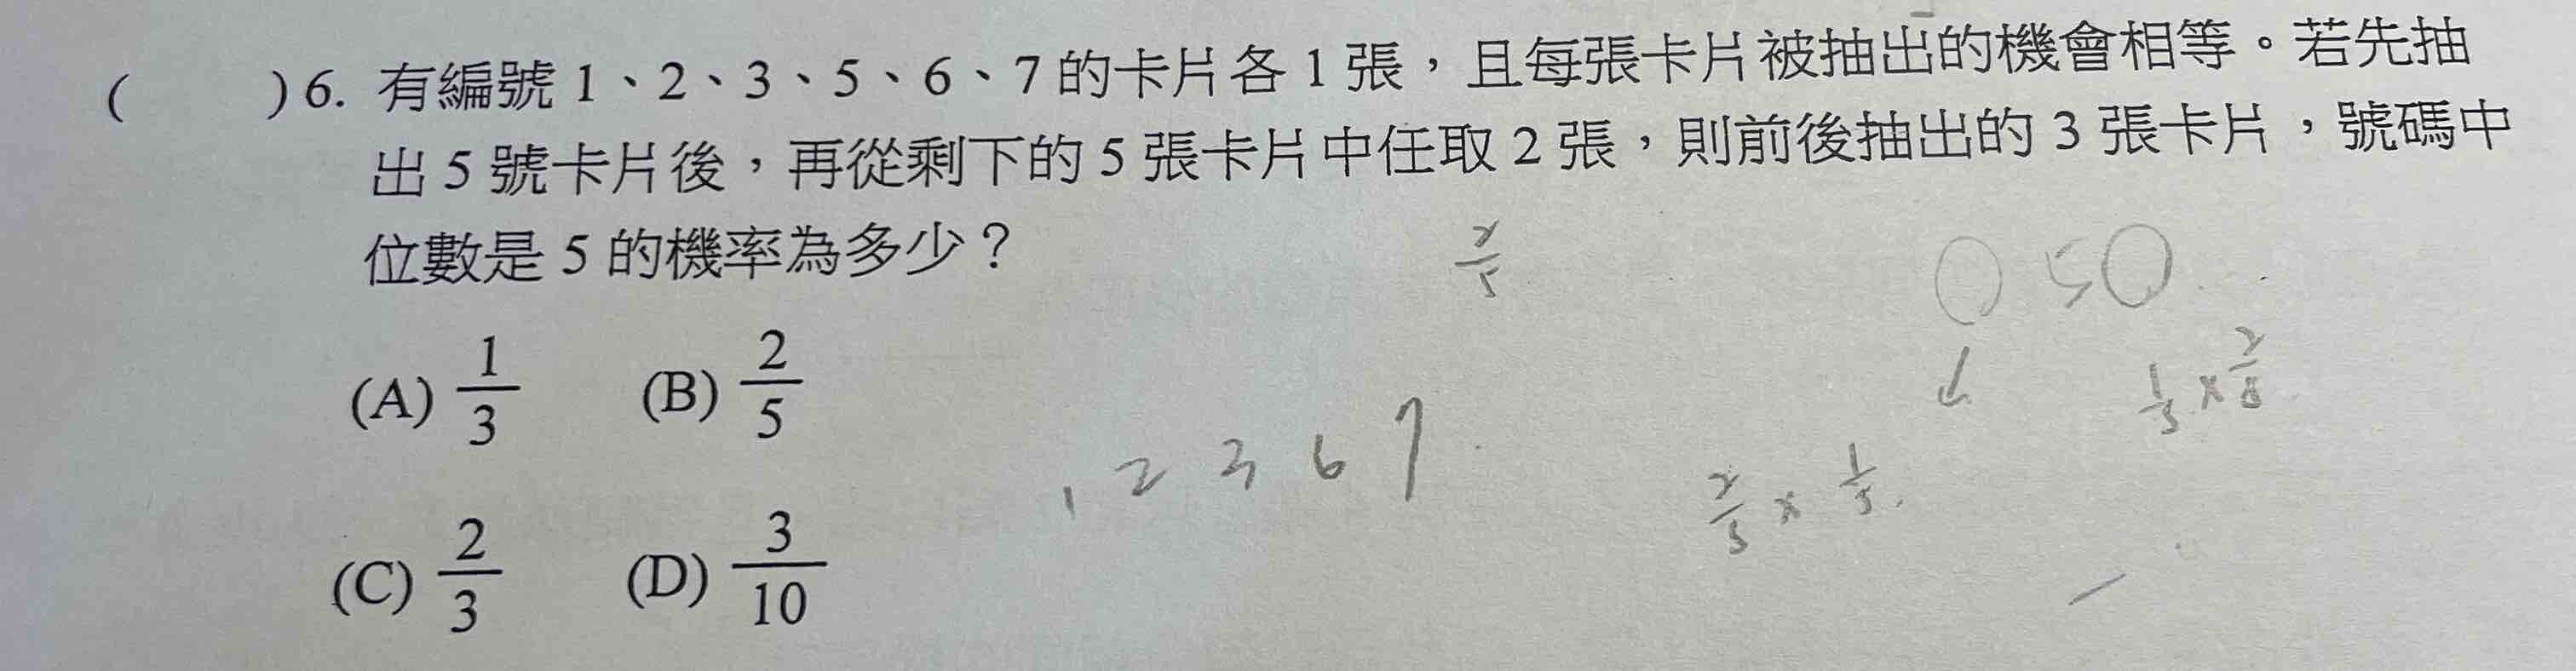 (　　) 6. 有編號 1、2、3、5、6、7 的卡片各 1 張，且每張卡片被抽出的機會相等。若先抽
出 5 號卡片後，再從剩下的 5 張卡片中任取 2 張，則前後抽出的 3 張卡片，號碼中
位數是 5 的機率為多少？
2/5
〇 5 〇
(A) 1/3 (B) 2/5
1 2 3 6 7
2/5 × 1/5
(C) 2/3 (D) 3/10